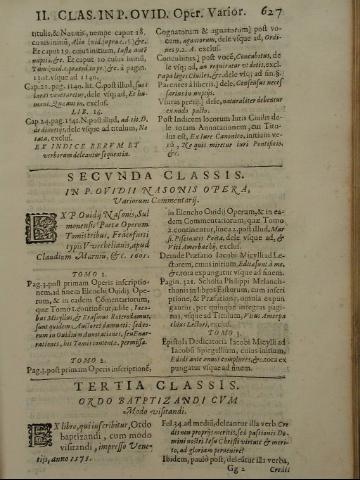 II. CLAS. IN P. OVID. Oper. Varior. 627
titulis, & Notatis, nempe caput 18.
cuius initium,
& c. Et caput 19. cuius initium,
& c. Et caput 20. cuius initium,
& c. à pagin.
1101. vsque ad 1140.
Cap. 22. pag. 1140. lit. C. post illud, sunt
dele vsque ad, Et hu-
exclus.
LIB. 24.
Cap. 24. pag. 1141. N. post illud, ad tit. D.
dele vsque ad titulum, No
tata, exclus.
ET INDICE RERVM ET
verborum deleantur sequentia.
Cognatorum & agnatorum] post vo-
cem, agnatorum, dele vsque ad, Ordi-
nes 9. 2. A. exclus.
Concubitus] post vocē, Concubitus, de
le vsq; ad, an requiratur
Papa leges Civiles. & c. dele vsq; ad fin.
Parentes à liberis] dele, Consensus neces-
sarius in nuptijs.
Vsuras præsij] dele, naturaliter debentur
ex nudo pacto.
Post Indicem locorum Iuris Civilis de-
le totam Annotationem, cui Titu-
lus est, Ex Iure Canonico, initium ve-
rò, Ne quis miretur iuris Pontificij,
& c.
SECVNDA CLASSIS.
IN P. OVIDII NASONIS OPERA,
Variorum Commentarij.
EX P. Ouidij Nasonis, Sul
monensis Poetæ Operum
Tomis tribus, Francofurti
typis Vvechelianis, apud
Claudium Marnium, & c. 1601.
TOMO 1.
Pag. 3. post primam Operis inscriptio-
nem, ad finem Elenchi Ouidij Ope-
rum, & in eadem Cōmentariorum,
quæ Tomo 1. continētur adde, Iaco-
bus Micyllus, & Erasmus Roterodamus,
sunt quidem Auctores damnati: sed eo-
rum in Ouidium Annotationes, seu Enar-
rationes, hoc Tomo contentæ, permissæ.
TOMO 2.
Pag. 3. post primam Operis inscriptionē,
in Elencho Ouidij Operum, & in ea-
dem Commentariorum, quæ Tomo
2. continentur, linea 2. post illud, Mar-
si, Piscinatis Poetæ, dele vsque ad, &
Viti Amerbachij, exclus.
Deinde Præfatio Iacobi Micylli Le-
ctorem, cuius initium,
& c. tota expungatur vsque ad finem.
Pagin. 321. Scholia Philippi Melanch-
thonis in libros Fastorum, cum inscri
ptione, & Præfatione, omnia expun
gantur, per quinque integras pagi-
nas, vsque ad Titulum, Vitus Amerpa
chius Lectori, exclus.
TOMO 3.
Epistola Dedicatoria Iacobi Micylli ad
Iacobum Spiegellium, cuius initium,
& c. tota ex
pungatur vsque ad finem.
TERTIA CLASSIS.
ORDO BAPTIZANDI CVM
Modo visitandi.
EX libro, qui inscribitur, Ordo
baptizandi, cum modo
visitandi, impresso Vene-
tijs, anno 1575.
Fol. 34. ad mediū, deleantur illa verba Cre
dis non proprijs meritis, sed passionis Do
mini nostri Iesu Christi virtute & meri-
to, ad gloriam peruenire?
Ibidem, paulò post, deleantur illa verba,
Gg 2 Credis